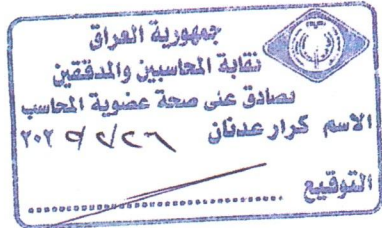 جمهورية العراق
نقابة المحاسبين والمدققين
نصادق على صحة عضوية المحاسب
الاسم كرار عدنان
التوقيع